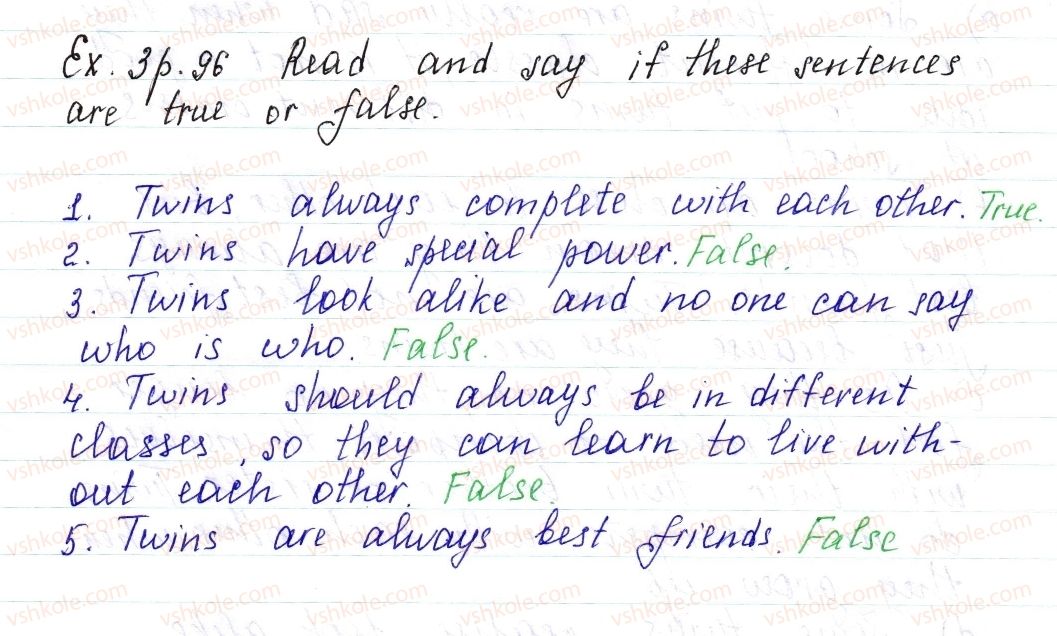 Ex. 3 p. 96 Read and say if these sentences
are true or false.
1. Twins always complete with each other. True.
2. Twins have special power. False.
3. Twins look alike and no one can say
who is who. False.
4. Twins should always be in different
classes, so they can learn to live with-
out each other. False.
5. Twins are always best friends. False